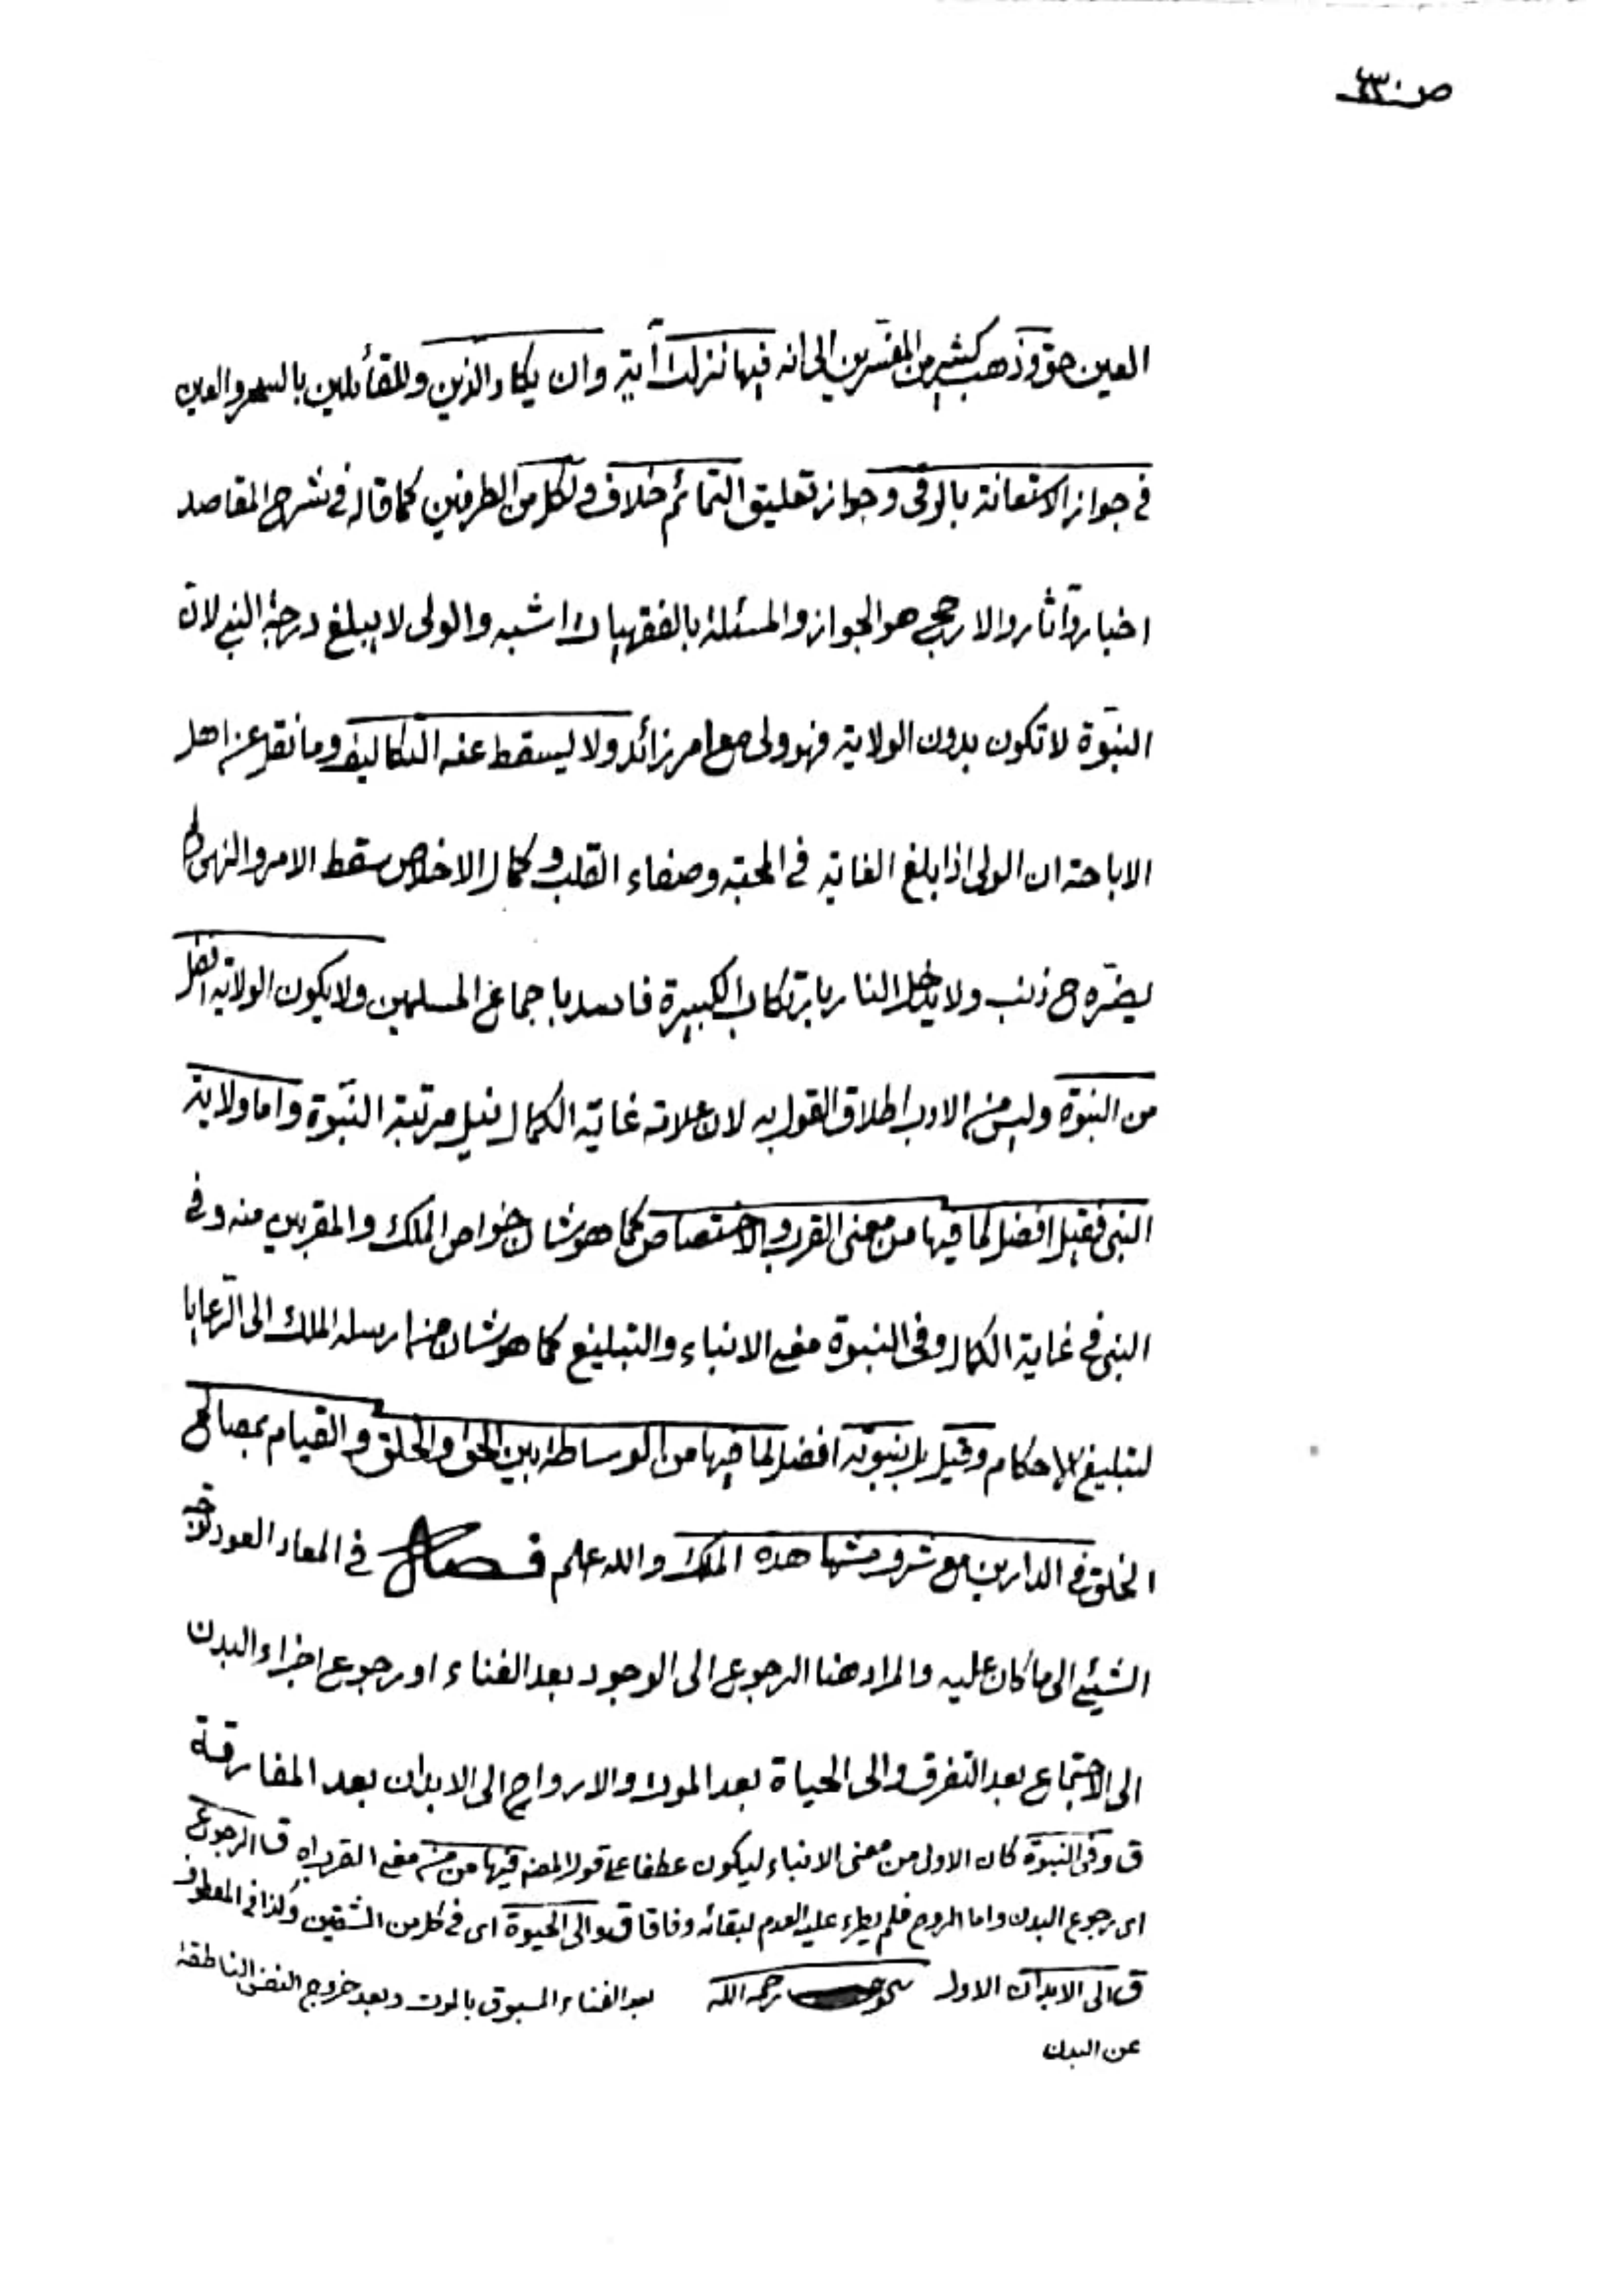 ص ٣٣٠
العين حق وذهب كثير من المفسّرين الى انه فيها نزلت آية وان يكاد الذين وللقائلين بالسحر والعين
فى جواز الاستعانة بالرقى وجواز تعليق التمائم خلاف ولكل من الطرفين كما قاله فى شرح المقاصد
اخبار وآثار والارجح هو الجواز والمسئلة بالفقهيات اشبه والولى لا يبلغ درجة النبى لان
النبوّة لا تكون بدون الولاية فهو ولى مع امر زائد ولا يسقط عنه التكاليف وما نقل عن اهل
الاباحة ان الولى اذا بلغ الغاية فى المحبة وصفاء القلب وكمال الاخلاص سقط الامر والنهى ولم
يضرّه ح ذنب ولا يدخل النار بارتكاب الكبيرة فاسد باجماع المسلمين ولا يكون الولاية افضل
من النبوة وليس من الادب اطلاق القول به لان علامة غاية الكمال نيل مرتبة النبوّة واما ولاية
النبى فقيل افضل لما فيها من معنى القرب والاختصاص كما هو شان خواص الملك والمقربين منه وفى
النبى فى غاية الكمال وفى النبوة معنى الانباء والتبليغ كما هو شان من ارسله الملك الى الرّعايا
لتبليغ الاحكام وقيل بل نبوّته افضل لما فيها من الوساطة بين الحق والخلق والقيام بمصالح
الخلق فى الدارين مع شرف مشاهدة الملك والله علم فصل فى المعاد العود
الشيئ الى ما كان عليه والمراد هنا الرجوع الى الوجود بعد الفناء او رجوع اجزاء البدن
الى الاجتماع بعد التفرق والى الحياة بعد الموت والارواح الى الابدان بعد المفارقة
ق وفى النبوّة كان الاول من معنى الانباء ليكون عطفا على قول المصنف فيها من معنى القرب اه ق الرجوع
اى رجوع البدن واما الروح فلم يطرء عليه العدم لبقائه وفاقا ق والى الحيوة اى فى كل من الشقين وكذا فى المعطوف
ق الى الابدان الاول رحمه الله بعد الفناء المسبوق بالموت وبعد خروج النفس الناطقة
عن البدن